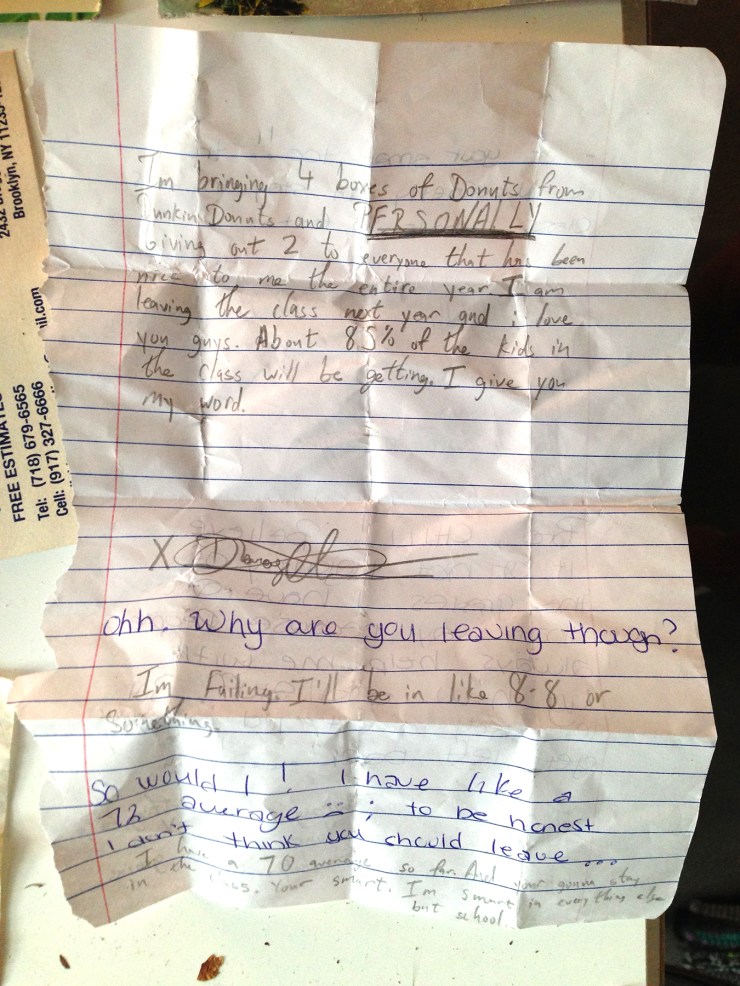 Im bringing 4 boxes of Donuts from
Dunkin Donuts and PERSONALLY
Giving out 2 to everyone that has been
nice to me the entire year I am
leaving the class next year and i love
you guys. About 85% of the kids in
the class will be getting. I give you
My word.
X
ohh. Why are you leaving though?
Im Failing. I'll be in like 8-8 or
Something.
So would I! I have like a
72 average :( ; to be honest
I don't think you should leave...
I have a 70 average so far. And your gunna stay
in the class. Your smart. Im smart in everything else
but school.
Brooklyn, NY
FREE ESTIMATES
Tel: (718) 679-6565
Cell: (917) 327-6666
il.com